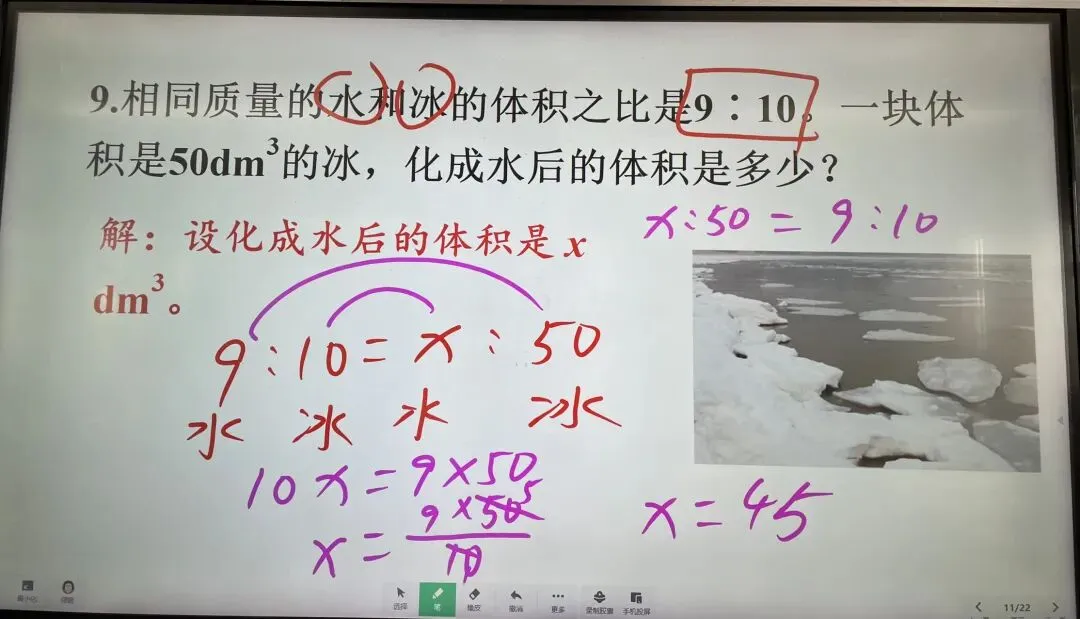 9.相同质量的水和冰的体积之比是9∶10。一块体
积是50dm³的冰，化成水后的体积是多少？
解：设化成水后的体积是 x
dm³。
x:50=9:10
9:10=x:50
水 冰 水 冰
10x=9×50
x=9×50/10
5
x=45
选择 笔 橡皮 撤消 更多 录制胶囊 手机投屏
11/22